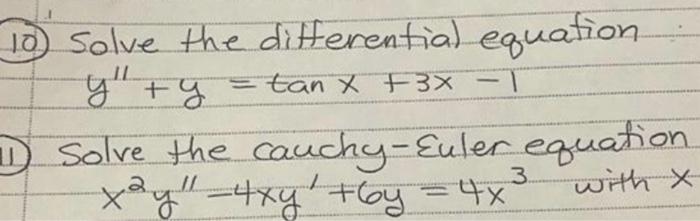 10) Solve the differential equation
y" + y = tan x + 3x - 1
11) Solve the Cauchy-Euler equation
x²y" - 4xy' + 6y = 4x³ with x